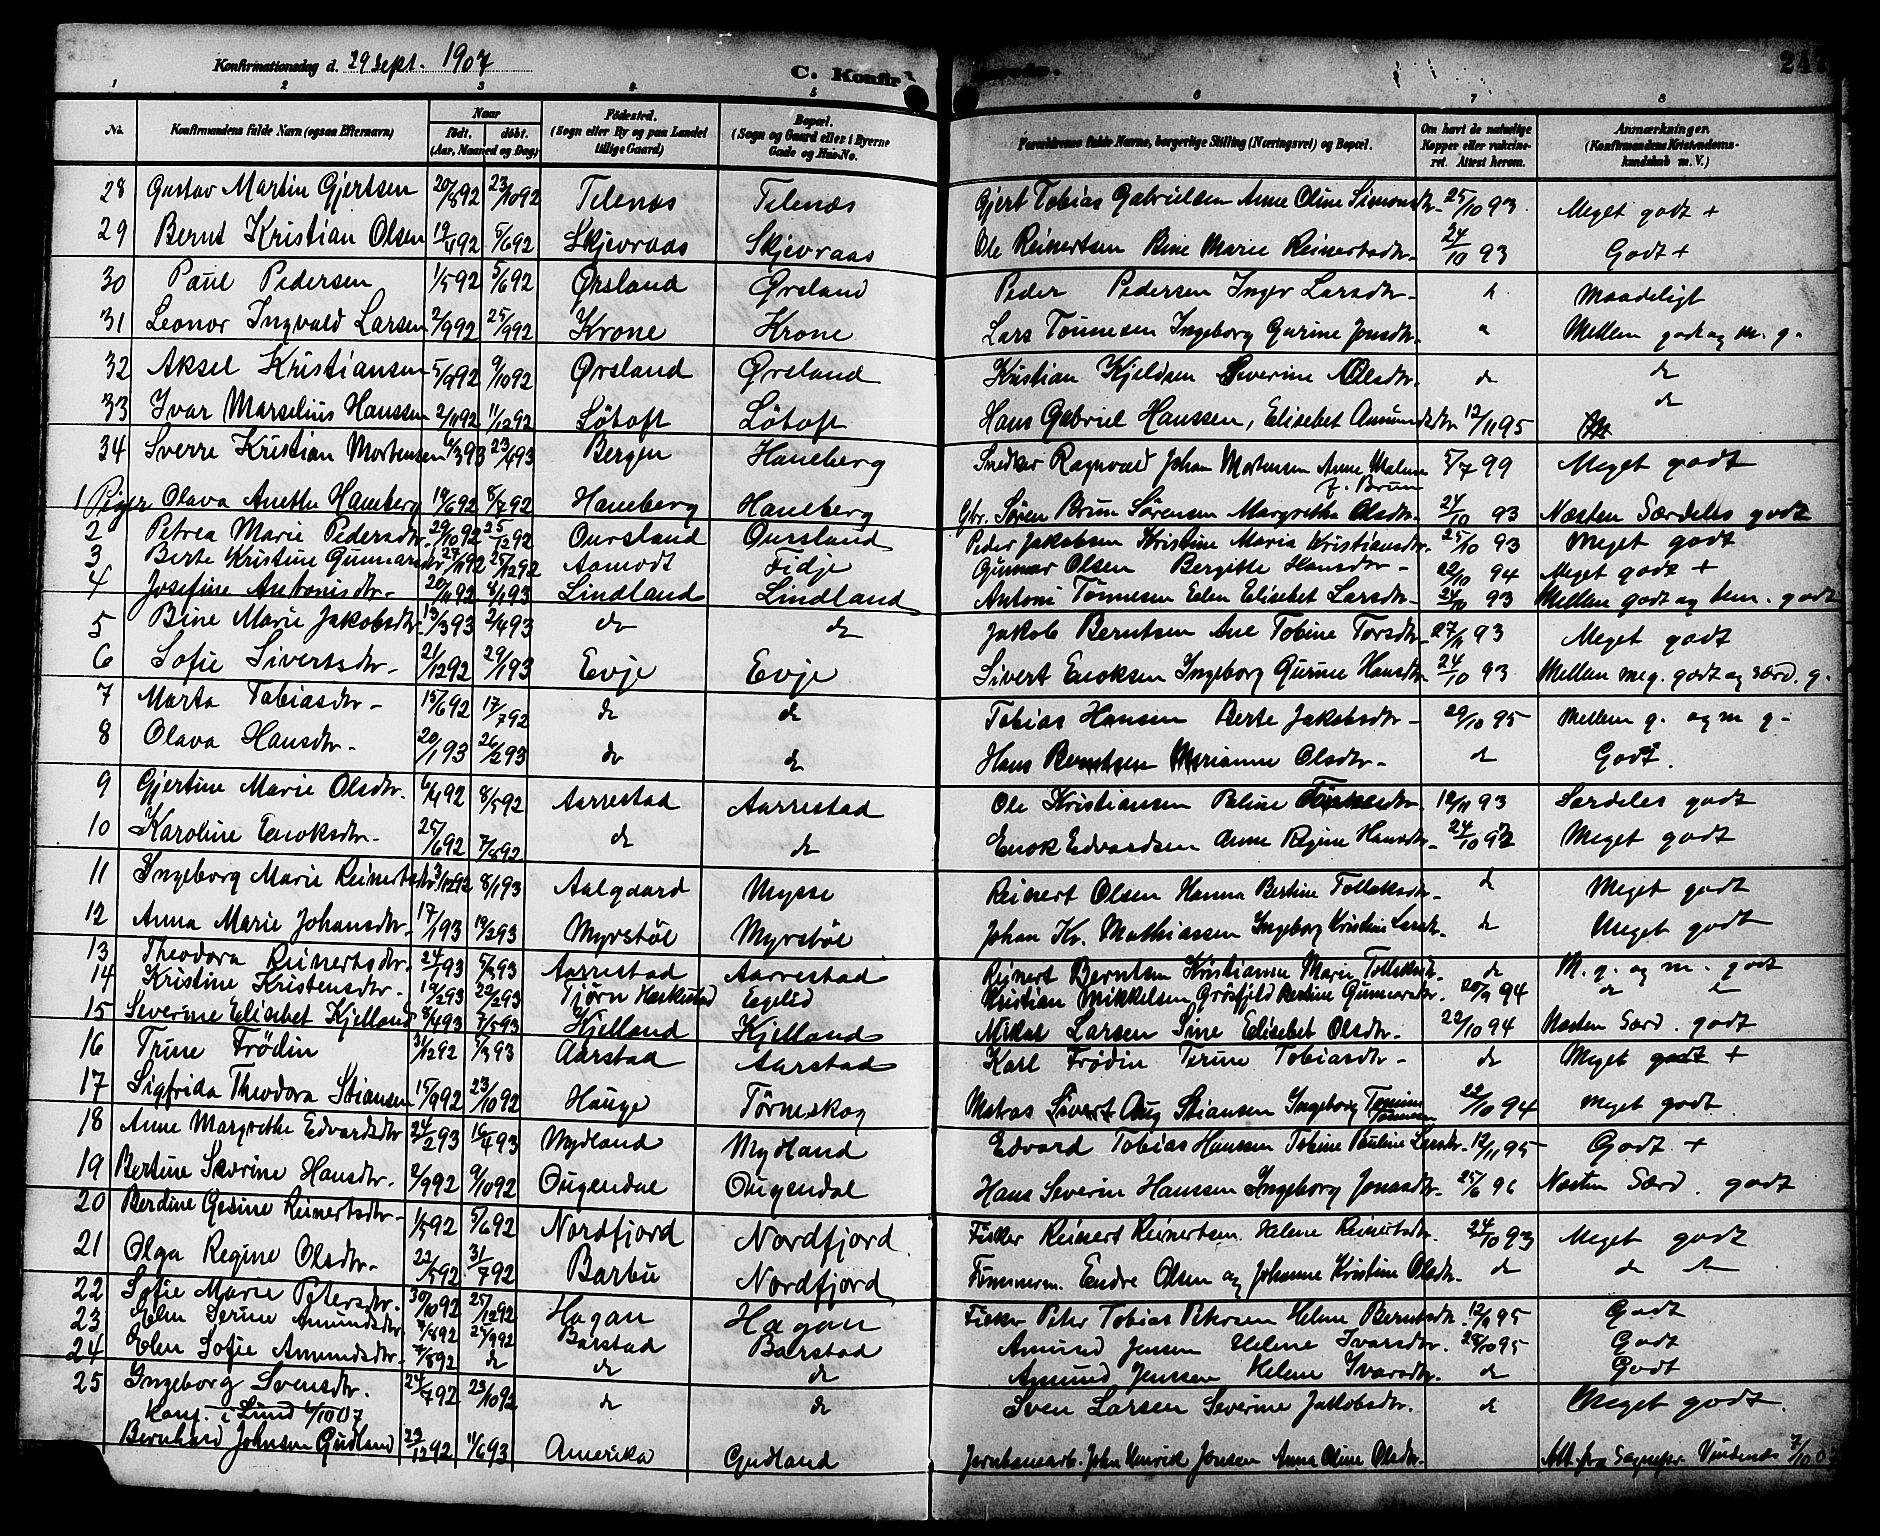 Konfirmationsdag d. 29 Sept. 1907
C. Konfir
247
1 2 3 4 5 6 7 8
No. Konfirmandens fulde Navn (ogsaa Efternavn) Naar født. døbt. (Aar, Maaned og Dag) Fødested. (Sogn eller By og paa Landet tillige Gaard) Bopæl. (Sogn og Gaard eller i Byerne Gade og Hus-No. Forældrenes fulde Navne, borgerlige Stilling (Næringsvei) og Bopæl. Om havt de naturlige Kopper eller vaccineret. Attest herom. Anmærkninger. (Konfirmandens Kristendomskundskab m. V.)
28 Gustav Martin Gjertsen 20/8 92 23/10 92 Telenæs Telenæs Gjert Tobias Gabrielsen Anne Oline Simonsdtr. 25/10 93 Meget godt +
29 Bernt Kristian Olsen 19/4 92 5/6 92 Skjevraas Skjevraas Ole Reinertsen Bine Marie Reinertsdtr. 24/10 93 Godt +
30 Paul Pedersen 1/5 92 5/6 92 Ørsland Ørsland Peder Pedersen Inger Larsdtr. Maadeligt
31 Leonor Ingvald Larsen 2/9 92 25/9 92 Krone Krone Lars Tønnesen Ingeborg Gurine Jonsdtr. Mellem godt og m. g.
32 Aksel Kristiansen 5/9 92 9/10 92 Ørsland Ørsland Kristian Kjeldsen Severine Olsdtr. do do
33 Ivar Marselius Hanssen 2/11 92 11/12 92 Løtoft Løtoft Hans Gabriel Hanssen, Elisebet Amundsdtr 12/11 95 do
34 Sverre Kristian Mortensen 6/3 93 23/4 93 Bergen Haneberg Snedker Ragnvald Johan Mortensen Anne Malene f. Bruun 5/7 99 Meget godt
1 Piger Olava Anette Haneberg 19/6 92 8/7 92 Haneberg Haneberg Gbr. Søren Brun Sørensen Margrethe Olsdtr. 24/10 93 Næsten Særdeles godt
2 Petrea Marie Pedersdtr. 29/10 92 25/12 92 Oursland Oursland Peder Jakobsen Kristine Maria Kristiansdtr. 25/10 93 Meget godt
3 Berte Kristine Gunnarsdtr. 27/11 92 25/12 92 Aamodt Fidje Gunnar Olsen Bergitte Hansdtr. 22/10 94 Meget godt +
4 Josefine Antonisdtr. 20/11 92 6/1 93 Lindland Lindland Antoni Tønnesen Elen Elisebet Larsdtr. 24/10 93 Mellem godt og tem. godt
5 Bine Marie Jakobsdtr. 13/3 93 2/4 93 do do Jakob Berntsen Ane Tobine Torsdtr. 27/11 93 Meget godt
6 Sofie Sivertsdtr. 21/12 92 29/1 93 Evje Evje Sivert Enoksen Ingeborg Gurine Hansdtr. 24/10 93 Mellem meg. godt og særd. g.
7 Marta Tobiasdtr. 15/6 92 17/7 92 do do Tobias Hansen Berte Jakobsdtr. 29/10 95 Mellem g. og m g.
8 Olava Hansdtr. 20/1 93 26/2 93 do do Hans Berntsen Marianne Olsdtr. do Godt.
9 Gjertine Marie Olsdtr. 6/4 92 8/5 92 Aarrestad Aarrestad Ole Kristiansen 12/11 93 Særdeles godt
10 Karoline Enoksdtr. 25/6 92 7/8 92 do do Enok Edvardsen Anne Regine Hansdtr. 24/10 92 Meget godt
11 Ingeborg Marie Reinertsdtr. 3/12 92 8/1 93 Aalgaard Mysse Reinert Olsen Hanna Bertine Tolleksdtr. do Meget godt
12 Anna Marie Johansdtr. 17/1 93 19/2 93 Myrstøl Myrstøl Johan Kr. Mathiassen Ingeborg Kristine Larsdtr. do Meget godt
13 Theodora Reinertsdtr. 24/1 93 5/3 93 Aarrestad Aarrestad Reinert Berntsen Kristianse Marie Tolleksdtr. do M. g. og m. godt
14 Kristine Kristensdtr. 19/2 93 22/2 93 Tjørn Heskestad Egelid Kristian Mikkelsen Grøsfjeld Bertine Gunnarsdtr. 20/9 94 do
15 Severine Elisebet Kjelland 8/4 93 7/5 93 Kjelland Kjelland Mikal Larsen Sine Elisebet Olsdtr. 22/10 94 Næsten Særd. godt
16 Trine Frødin 31/12 92 5/3 93 Aarstad Aarstad Karl Frødin Terine Tobiasdtr. do Meget godt +
17 Sigfrida Theodora Stiansen 15/9 92 23/10 92 Hauge Tørneskog Matros Sivert Aug Stiansen Ingeborg Tomine Tønnesen 22/10 94 Meget godt
18 Anne Margrethe Edvardsdtr 24/2 93 16/4 93 Mydland Mydland Edvard Tobias Hanssen Tobine Pauline Larsdtr. 12/11 95 Godt +
19 Bertine Severine Hansdtr. 2/9 92 9/10 92 Ougendal Ougendal Hans Severin Hanssen Ingeborg Jonasdtr. 25/6 96 Næsten Særd. godt
20 Berdine Gesine Reinertsdtr. 1/5 92 5/6 92 Nordfjord Nordfjord Fisker Reinert Reinertsen Helene Reinertsdtr. 24/10 93 Meget godt
21 Olga Regine Olsdtr. 22/5 92 31/7 92 Barbu Nordfjord Tømmerm. Endre Olsen og Johanne Kristine Olsdtr. do do
22 Sofie Marie Petersdtr. 30/10 92 25/12 92 Hagan Hagan Fisker Peter Tobias Petersen Helene Berntsdtr. 12/11 95 Godt
23 Elen Serine Amundsdtr 7/8 92 25/9 92 Barstad Barstad Amund Jensen Helene Ivarsdtr. 28/10 95 Godt
24 Elen Sofie Amundsdtr. 7/8 92 do do do Amund Jenssen Helene Ivarsdtr. do Godt
25 Ingeborg Svensdtr. 24/7 92 23/10 92 do do Sven Larsen Severine Jakobsdtr. do Meget godt.
Konf. i Lund 6/10 07
Bernhard Johnsen Gudland 23/12 92 11/6 93 Amerika Gudland Jernbanearb. John Henrik Jonsen Anna Oline Olsdtr. Att. fra Sognepr. 7/10 0